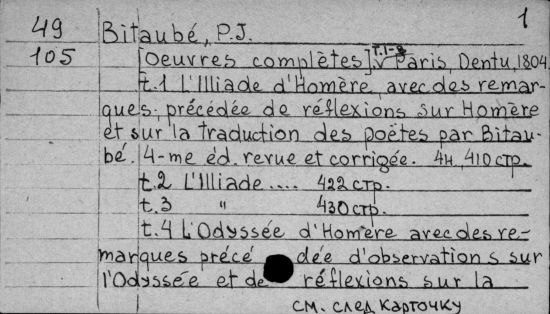 1
49 Bitaubé, P.J.
105 [Oeuvres complètes]. т.1-9 Paris, Dentu, 1804.
t.1 L'Illiade d'Homère, avec des remar-
ques; précédée de réflexions sur Homère
et sur la traduction des poëtes par Bitau-
bé. 4-me éd. revue et corrigée. 4н, 410 стр.
t.2 L'Illiade.... 422 стр.
t.3 " 430 стр.
t.4 L'Odyssée d'Homère avec des re-
marques précé dée d'observations sur
l'Odyssée et de réflexions sur la
см. след карточку